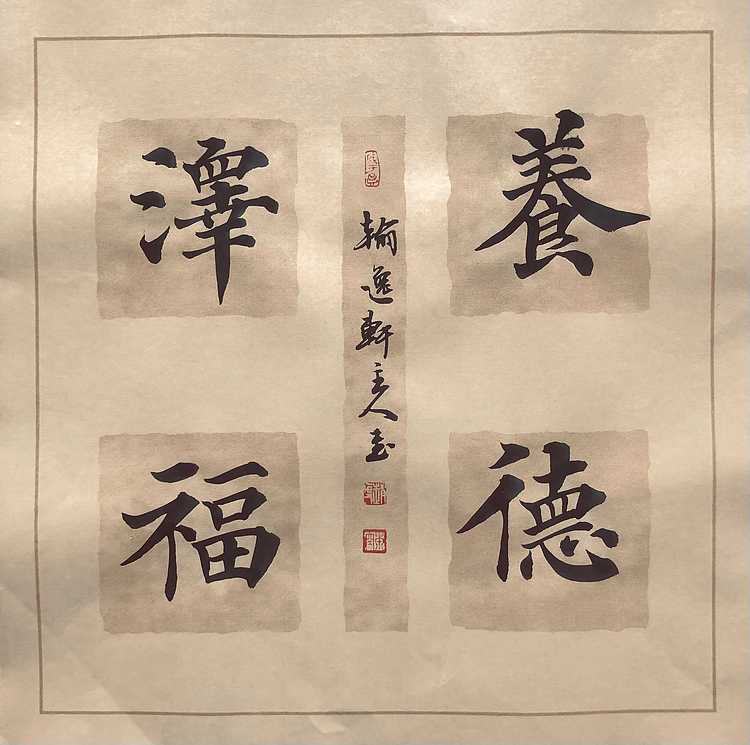 養德
澤福
翰逸軒主人書